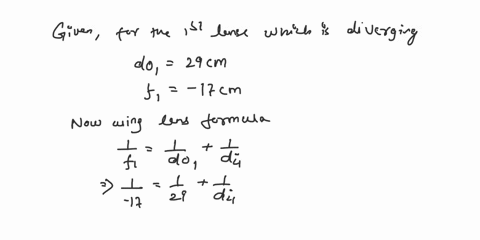 Given, for the 1st lense which is diverging
do₁ = 29cm
f₁ = -17cm
Now using lens formula
1/f₁ = 1/do₁ + 1/di₁
⇒ 1/-17 = 1/29 + 1/di₁